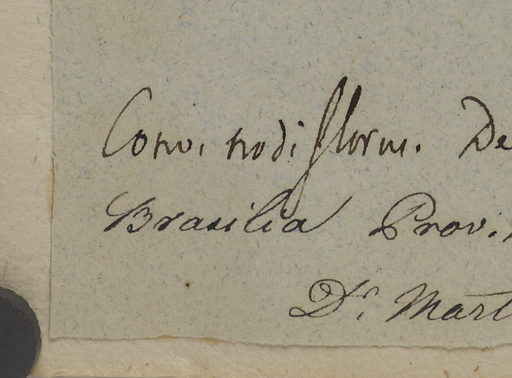 Conv. nodiflorus. De
Brasilia Prov.
Dr. Mart